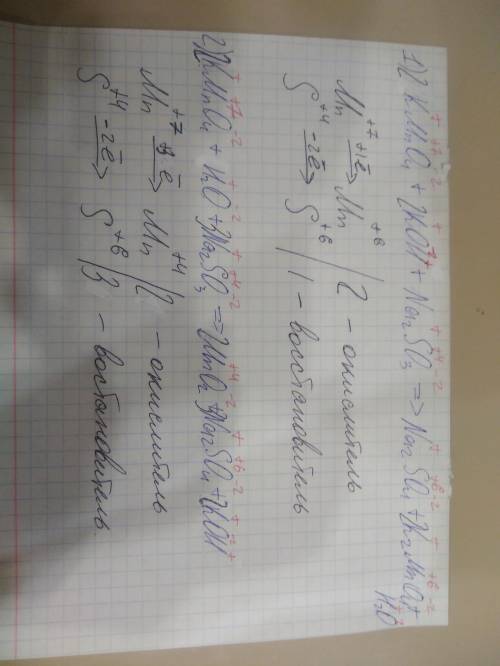 1) 2KMnO₄ + 2KOH + Na₂SO₃ => Na₂SO₄ + K₂MnO₄ +
H₂O
Mn⁺⁷ +1ē → Mn⁺⁶ / 2 – окислитель
S⁺⁴ -2ē → S⁺⁶ / 1 – восстановитель
2) 2KMnO₄ + H₂O + 3Na₂SO₃ => 2MnO₂ + 3Na₂SO₄ + 2KOH
Mn⁺⁷ +3ē → Mn⁺⁴ / 2 – окислитель
S⁺⁴ -2ē → S⁺⁶ / 3 – востановитель.